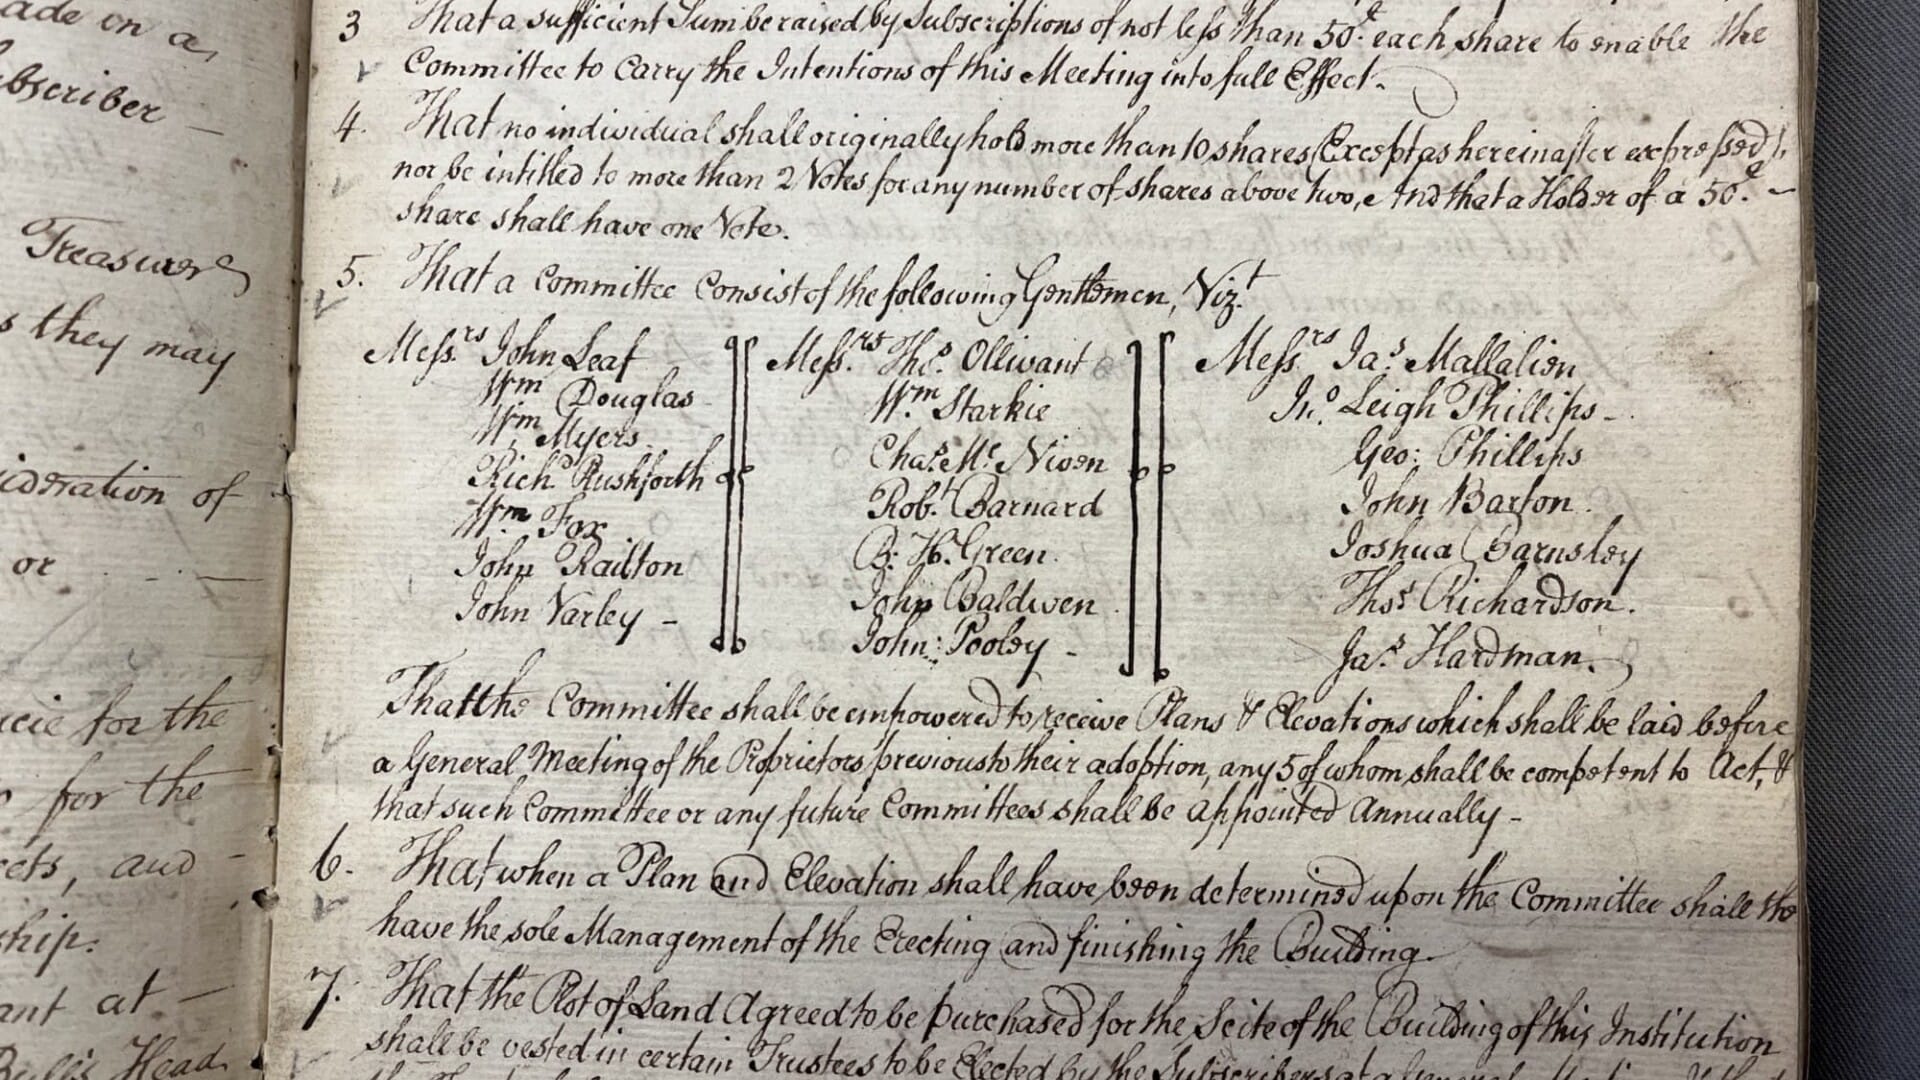 ade on a
ubscriber —
Treasurer
s they may
ideration of
or
cie for the
for the
ects, and -
ship.
ant at. —
Bull's Head
3 That a sufficient Sum be raised by Subscriptions of not less than 50.£ each share to enable the
Committee to Carry the Intentions of this Meeting into full Effect.
4. That no individual shall originally hold more than 10 shares (Except as hereinafter expressed),
nor be intitled to more than 2 Votes for any number of shares above two, And that a Holder of a 50.£ -
share shall have one Vote.
5. That a Committee Consist of the following Gentlemen, Viz.t
Mess.rs John Leaf
Wm Douglas
Wm. Myers.
Rich.d Rushforth
Wm. Fox
John Railton
John Varley -
Mess.rs Tho.s Ollivant
Wm. Starkie
Cha.s Mc. Niven
Rob.t Barnard
B: H. Green.
John Baldwen
John: Pooley -
Mess.rs Ja.s Mallalien
Jn.o Leigh Phillips -
Geo: Phillips
John Barton.
Joshua Barnsley
Tho.s Richardson.
Ja.s Hardman.
That the Committee shall be empowered to receive Plans & Elevations which shall be laid before
a General Meeting of the Proprietors previous to their adoption, any 5 of whom shall be competent to Act, &
that such Committee or any future Committees shall be Appointed Annually -
6. That when a Plan and Elevation shall have been determined upon the Committee shall the
have the sole Management of the Erecting and finishing the Building.
7. That the Plot of Land Agreed to be purchased for the Scite of the Building of this Institution
shall be vested in certain Trustees to be Elected by the Subscribers at a General